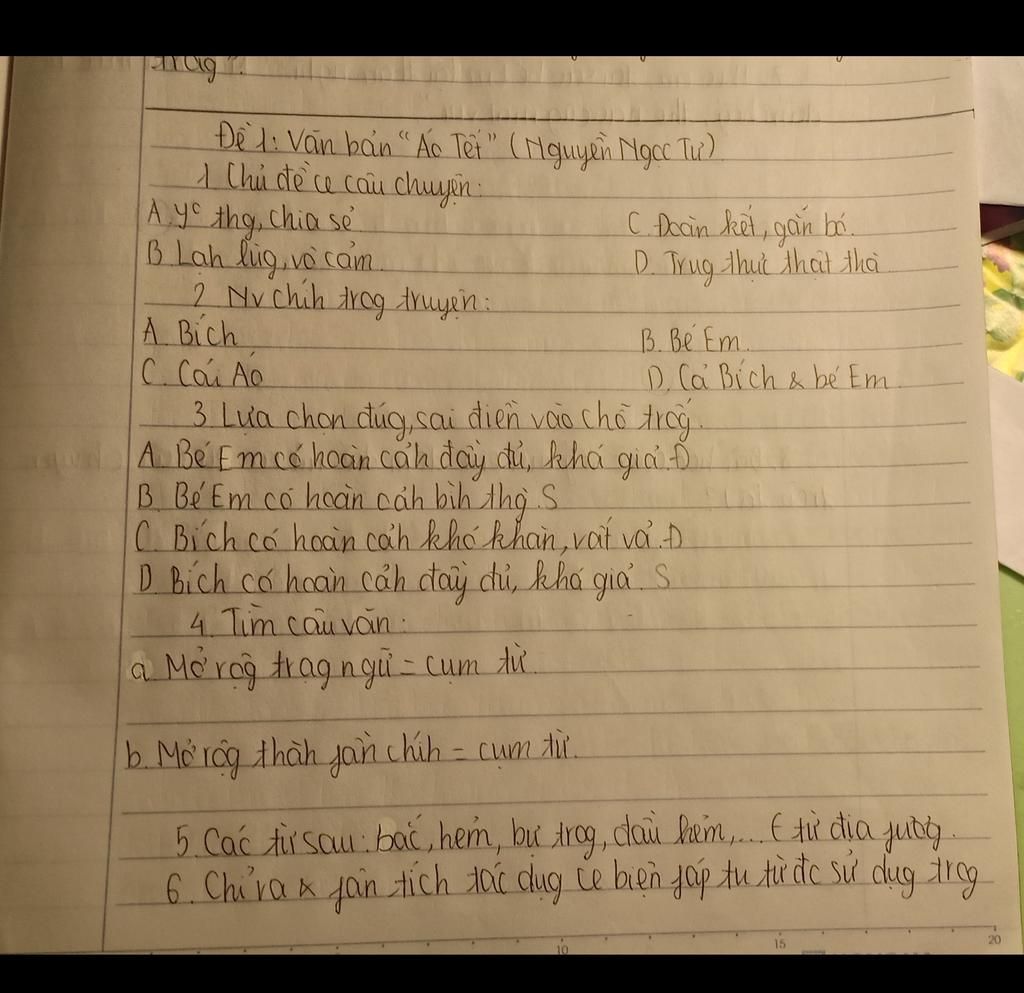 trag".
Đề 1: Văn bản "Áo Tết" (Nguyễn Ngọc Tư)
1 Chủ đề ce câu chuyện:
A. yc thg, chia sẻ C. Đoàn kết, gắn bó.
B Lah lùg, vô cảm. D. Trug thực thật thà
2 Nv chíh trog truyện:
A. Bích B. Bé Em.
C. Cái Áo D. Cả Bích & bé Em.
3. Lựa chọn đúg, sai điền vào chỗ trốg.
A. Bé Em có hoàn cảh đầy đủ, khá giả. Đ
B. Bé Em có hoàn cảh bìh thg. S
C. Bích có hoàn cảh khó khăn, vất vả. Đ
D. Bích có hoàn cảh đầy đủ, khá giả. S
4. Tìm câu văn:
a. Mở rộg trạg ngữ = cụm từ.
b. Mở rộg thàh fần chíh = cụm từ.
5. Các từ sau: bắc, hẻm, bự trog, đầu hẻm,... € từ địa fươg.
6. Chỉ ra & fân tích tác dụg ce biện fáp tu từ đc sử dụg trog
10 15 20